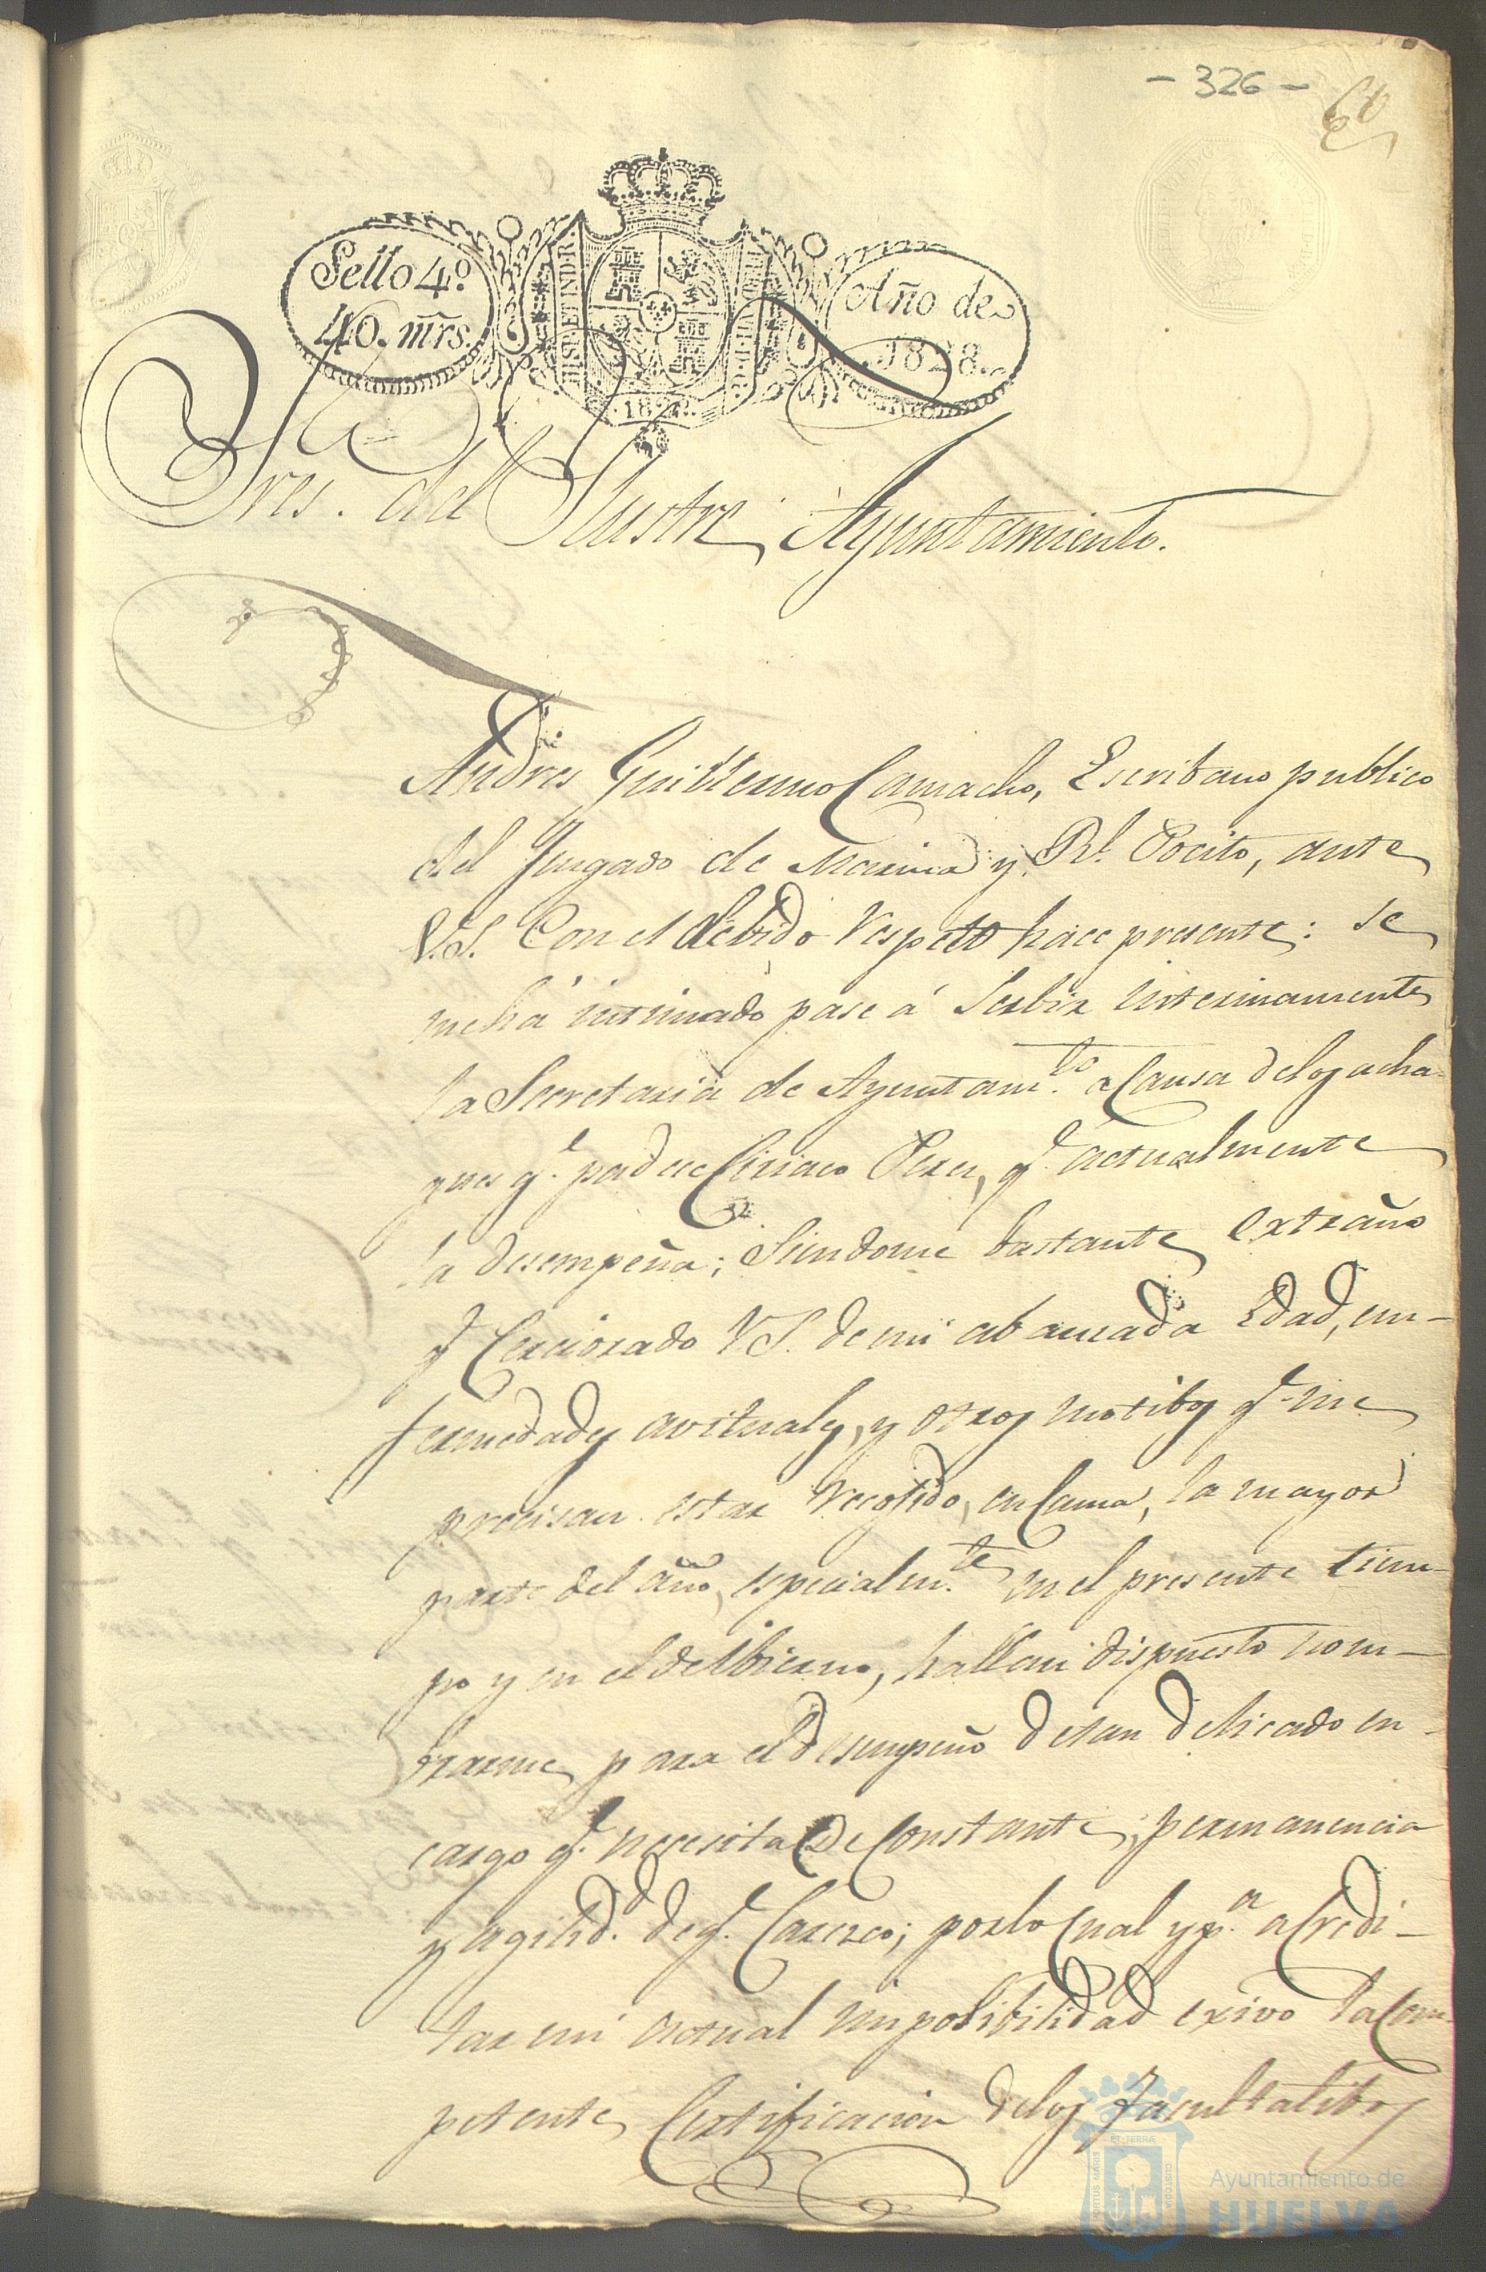 - 326 -
60
Sello 4º
40. mrs.
HISP. ET IND. R.
Año de
1828.
1828.
Sres. del Ilustre Ayuntamiento.
Andres Guillermo Camacho, Escribano publico
del Jusgado de Marina y Rl. Pocito, ante
V.S. Con el debido respeto hace presente: se
me há intimado pase á Serbir interinamente
la Secretaria de Ayuntamto. a Causa delos acha-
ques qe. padece Ciriaco Perez, qe. actualmente
la desempeña; Siendome bastante extraño
qe Cerciorado V.S. de mi abansada Edad, en-
fermedades avituales, y otros motibos qe. me
precisan estar recojido, en Cama, la mayor
parte del año, especialmte. en el presente tiem-
po y en el del Ibierno, halla dispuesto nom-
brarme para el desempeño de tan delicado en-
cargo qe. necesita de Constante permanencia
y agilidd. de qe. Caresco; por lo Cual y pa. acredi-
tar mi actual imposibilidad exivo la Com-
petente Certificacion delos Facultatibos
PORTUS MARIS
ET TERRÆ
CUSTODIA
Ayuntamiento de
HUELVA